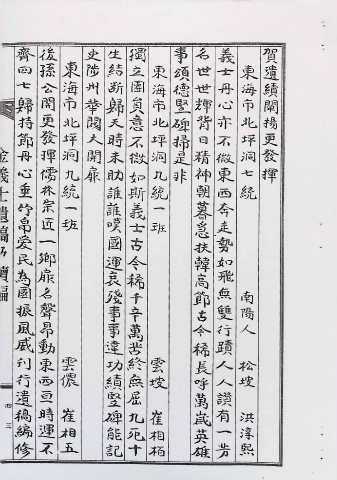 賀遺績闡揚更發揮
東海市北坪洞七統 南陽人 松坡 洪淳熙
義士丹心亦不微東西奔走勢如飛無雙行蹟人人讃有一芳
名世世輝背日精神朝暮急扶韓高節古今稀長呼萬歲英雄
事頌德竪碑掃是非
東海市北坪洞九統一班 雲坡 崔相栢
獨立圖負意不微如斯義士古今稀千辛萬苦終無屈九死十
生結斷歸天時未助誰誰嘆國運衰殘事事違功績竪碑能記
史陟州華閥大開扉
東海市北坪洞九統一班 雲儂 崔相五
後孫公閣更發揮儒林宗匠一鄉扉名聲昂動東西亘時運不
齊四七歸持節丹心垂竹帛爱民為國振風威刋行遺稿編修
金義士遺稿 續編
四三